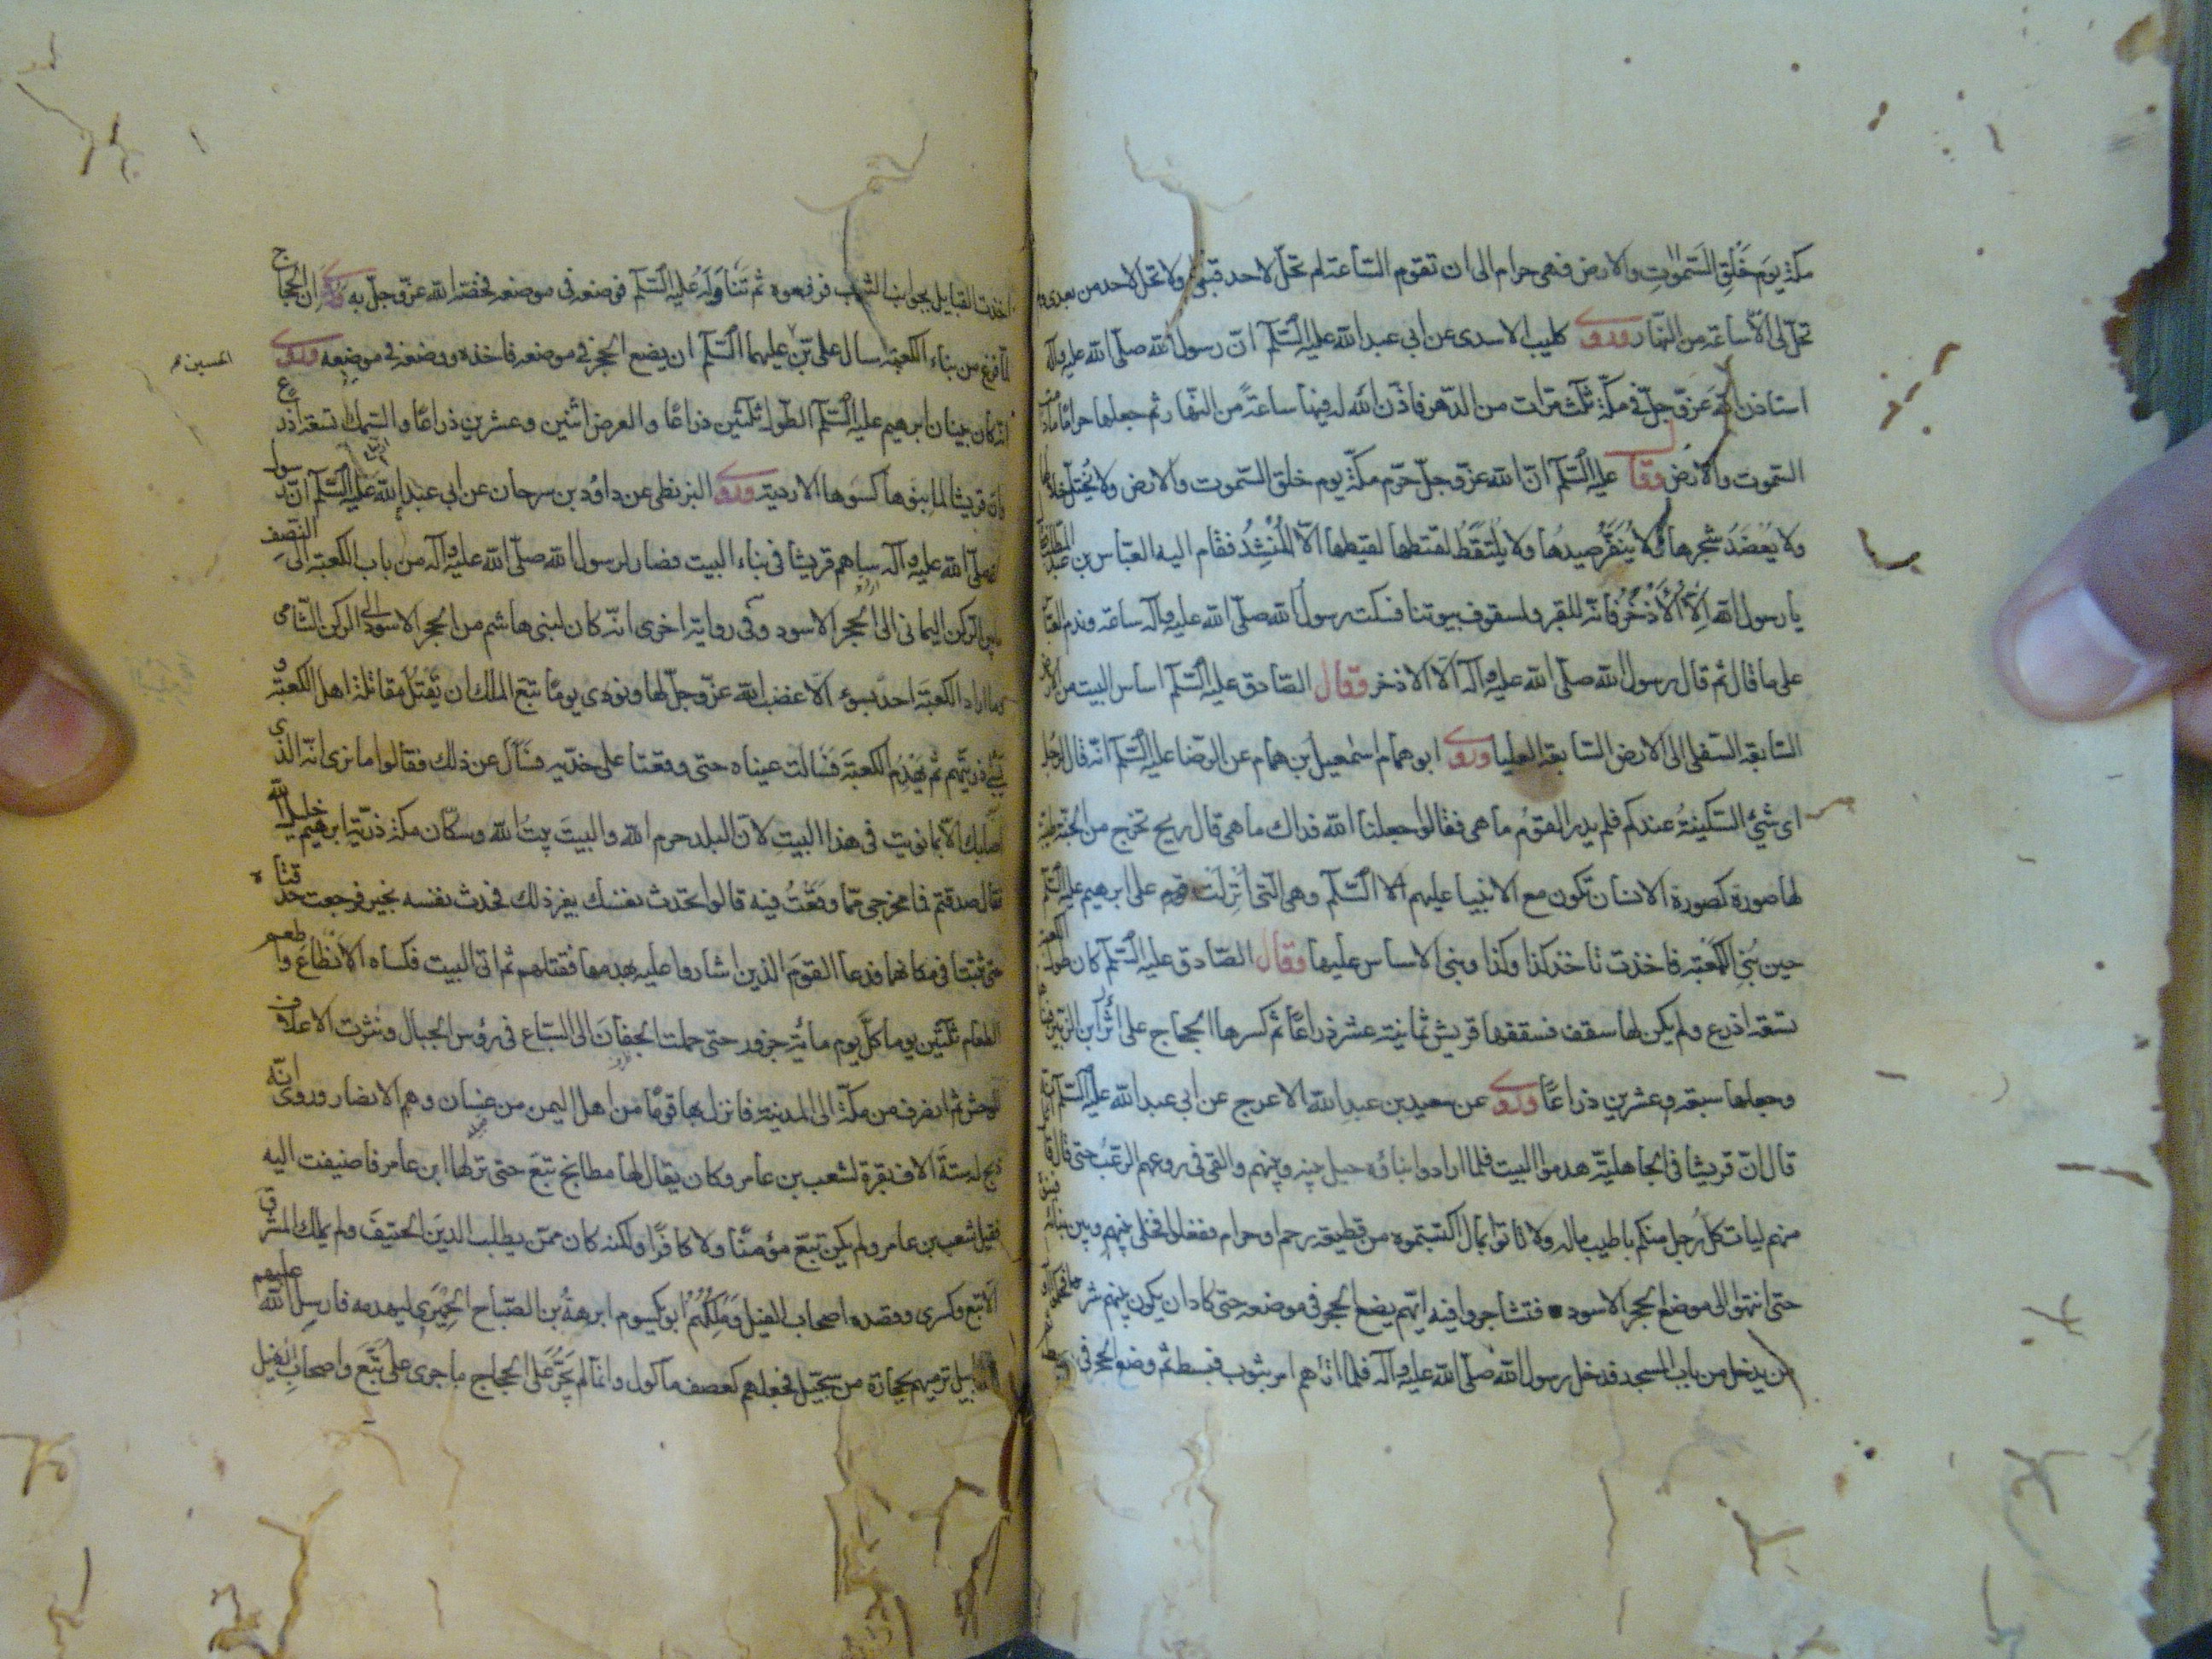 مكة يوم خلق السموات والارض فهى حرام الى ان تقوم الساعة لم تحل لاحد قبلى ولا تحل لاحد من بعدى ولم
تحل لى الا ساعة من النهار وروى كليب الاسدى عن ابى عبد الله عليه السلم ان رسول الله صلى الله عليه وآله
استاذن الله عز وجل فى مكة ثلث مرات من الدهر فاذن الله له فيها ساعة من النهار ثم جعلها حراما ما دامت
السموت والارض وقال عليه السلم ان الله عز وجل حرم مكة يوم خلق السموت والارض ولا يختلى خلاها
ولا يعضد شجرها ولا ينفر صيدها ولا يلتقط لقطتها لقيطها الا المنشد فقام اليه العباس بن عبد المطلب فقال
يا رسول الله الا الاذخر فانه للقبر ولسقوف بيوتنا فسكت رسول الله صلى الله عليه وآله ساعة وندم العباس
على ما قال ثم قال رسول الله صلى الله عليه وآله الا الاذخر وقال الصادق عليه السلم اساس البيت من الارض
السابعة السفلى الى الارض السابعة العليا وروى ابو همام اسمعيل بن همام عن الرضا عليه السلم انه قال لرجل
اى شئ السكينة عندكم فلم يدر القوم ما هى فقالوا جعلنا الله فداك ما هى قال ريح تخرج من الجنة طيبة
لها صورة كصورة الانسان تكون مع الانبيا عليهم السلم وهى التى انزلت على ابرهيم عليه السلم
حين بنى الكعبة فاخذت تاخذ كذا وكذا وبنى الاساس عليها وقال الصادق عليه السلم كان طول الكعبة
تسعة اذرع ولم يكن لها سقف فسقفها قريش ثمانية عشر ذراعا ثم كسرها الحجاج على ابن الزبير
وجعلها سبعة وعشرين ذراعا وروى عن سعيد بن عبد الله الاعرج عن ابى عبد الله عليه السلم
قال ان قريشا فى الجاهلية هدموا البيت فلما ارادوا بناؤه حيل بينه وبينهم والقى فى روعهم الرعب حتى قال
منهم ليات كل رجل منكم باطيب ماله ولا تاتوا بمال اكتسبتموه من قطيعة رحم او حرام ففعلوا فخلى بينهم وبين بنائه
حتى انتهوا الى موضع الحجر الاسود فتشاجروا فيه ايهم يضع الحجر فى موضعه حتى كاد ان يكون بينهم شر
من يدخل من باب المسجد فدخل رسول الله صلى الله عليه وآله فلما اتاهم امر بثوب فبسط ثم وضع الحجر فى
اخذت القبايل بجوانب الثوب فرفعوه ثم تناوله عليه السلم فوضعه فى موضعه فخصه الله عز وجل به وروى ان الحجاج
لما فرغ من بناء الكعبة سال على بن عليهما السلم ان يضع الحجر فى موضعه فاخذه ووضعه فى موضعه وروى
الحسين
انه كان بنيان ابرهيم عليه السلم الطول ثلثين ذراعا والعرض اثنين وعشرين ذراعا والسمك تسعة اذرع
وان قريشا لما بنوها كسوها الاردية وروى البزنطى عن داود بن سرحان عن ابى عبد الله عليه السلم ان رسول
الله صلى الله عليه وآله ساهم قريشا فى بناء البيت فصار لرسول الله صلى الله عليه وآله من باب الكعبة الى النصف
ما بين الركن اليمانى الى الحجر الاسود وفى رواية اخرى انه كان لبنى هاشم من الحجر الاسود الى الركن الشامى
وما اراد الكعبة احد بسوء الا غضب الله عز وجل لها ونوى يوما تبع الملك ان يقتل مقاتلة اهل الكعبة و
يسبى ذريتهم ثم يهدم الكعبة فسالت عيناه حتى وقعتا على خديه فسال عن ذلك فقالوا ما نرى انه الذى
اصابك الا بما نويت فى هذا البيت لان البلد حرم الله والبيت بيت الله وسكان مكة ذرية ابرهيم خليل الله
فقال صدقتم فما مخرجى مما وقعت فيه قالوا تحدث نفسك بغير ذلك فحدث نفسه بخير فرجعت حدقتاه
حتى ثبتتا فى مكانهما فدعا القوم الذين اشاروا عليه بهدمها فقتلهم ثم اتى البيت فكساه الانطاع واطعم
الطعام ثلثين يوما كل يوم مائة جزور حتى حملت الجفان الى السباع فى رؤس الجبال ونثرت الاعلاف
للوحش ثم انصرف من مكة الى المدينة فانزل بها قوما من اهل اليمن من غسان وهم الانصار وروى انه
ذبح له ستة الاف بقرة لشعب بن عامر وكان يقال لها مطابخ تبع حتى نزلها ابن عامر فاضيفت اليه
فقيل شعب بن عامر ولم يكن تبع مؤمنا ولا كافرا ولكنه كان ممن يطلب الدين الحنيف ولم يملك المشرق
الا تبع وكسرى وقصده اصحاب الفيل وملكهم ابو يكسوم ابرهة بن الصباح الحميرى ليهدمه فارسل الله عليهم
ابابيل ترميهم بحجارة من سجيل فجعلهم كعصف ماكول وانما لم يجر على الحجاج ما جرى على تبع واصحاب الفيل